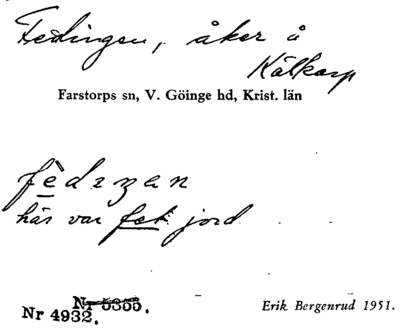 Fedingen, åker å
Kälkarp
Farstorps sn, V. Göinge hd, Krist. län
här var fet jord
Nr 5355.
Nr 4932.
Erik Bergenrud 1951.